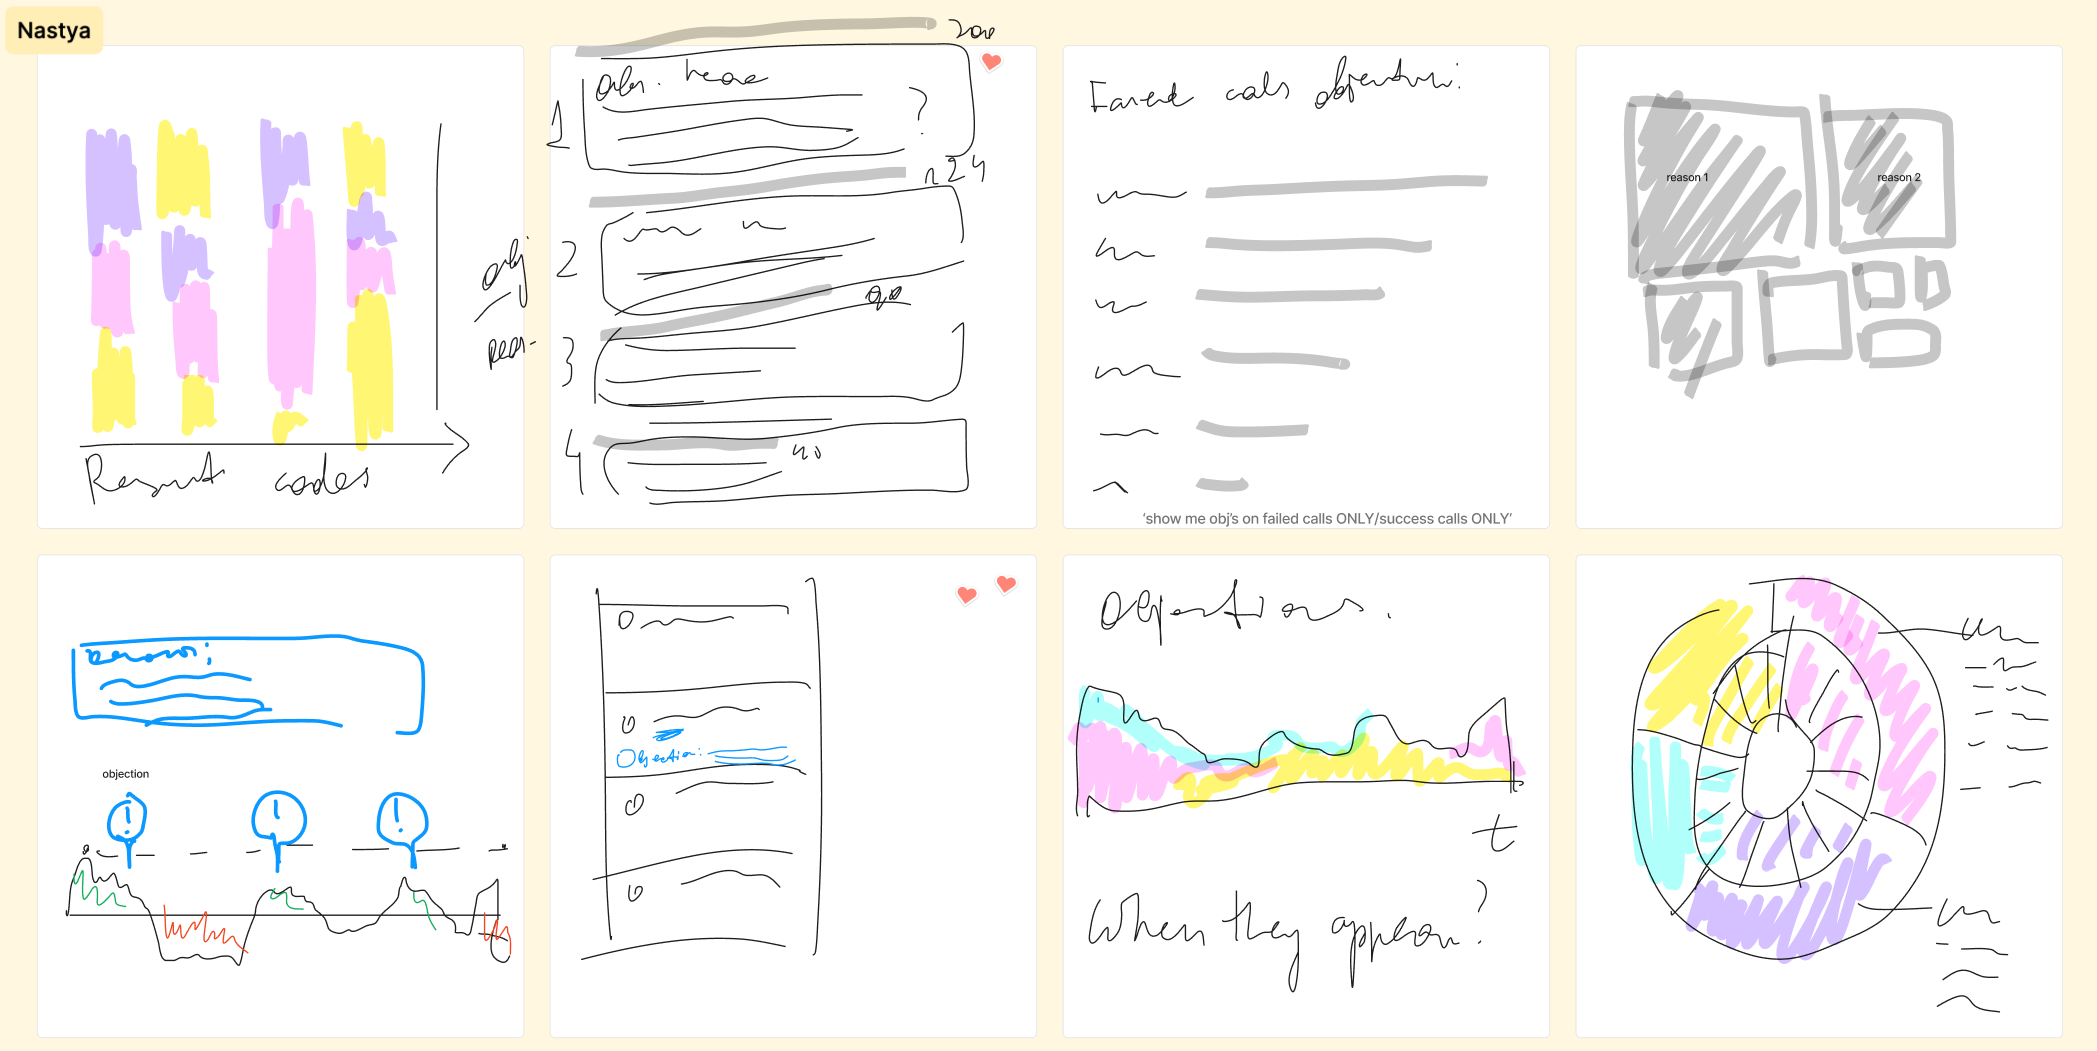 Nastya
obj
Result codes
200
obj. name
1
?
124
2
90
3
4
40
calls objection:
'show me obj's on failed calls ONLY/success calls ONLY'
reason 1
reason 2
reason:
objection
!
!
!
Objection:
Objections.
t
When they appear?